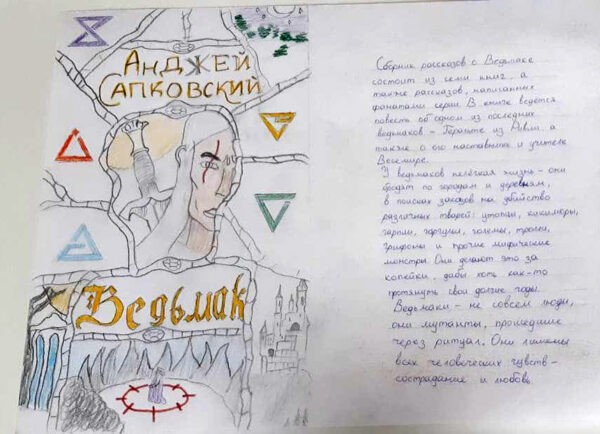 Анджей
Сапковский
Ведьмак
Сборник рассказов о Ведьмаке
состоит из семи книг, а
также рассказов, написанных
фанатами серии. В книге ведется
повесть об одном из последних
ведьмаков - Геральте из Ривии, а
также о его наставнике и учителе
Весемире.
У ведьмаков нелёгкая жизнь - они
бродят по городам и деревням,
в поисках заказов на убийство
различных тварей: утопцы, кикиморы,
гарпии, горгульи, големы, тролли,
грифоны и прочие мифические
монстры. Они делают это за
копейки, дабы хоть как-то
протянуть свои долгие годы.
Ведьмаки - не совсем люди,
они мутанты, прошедшие
через ритуал. Они лишены
всех человеческих чувств -
сострадание и любовь.